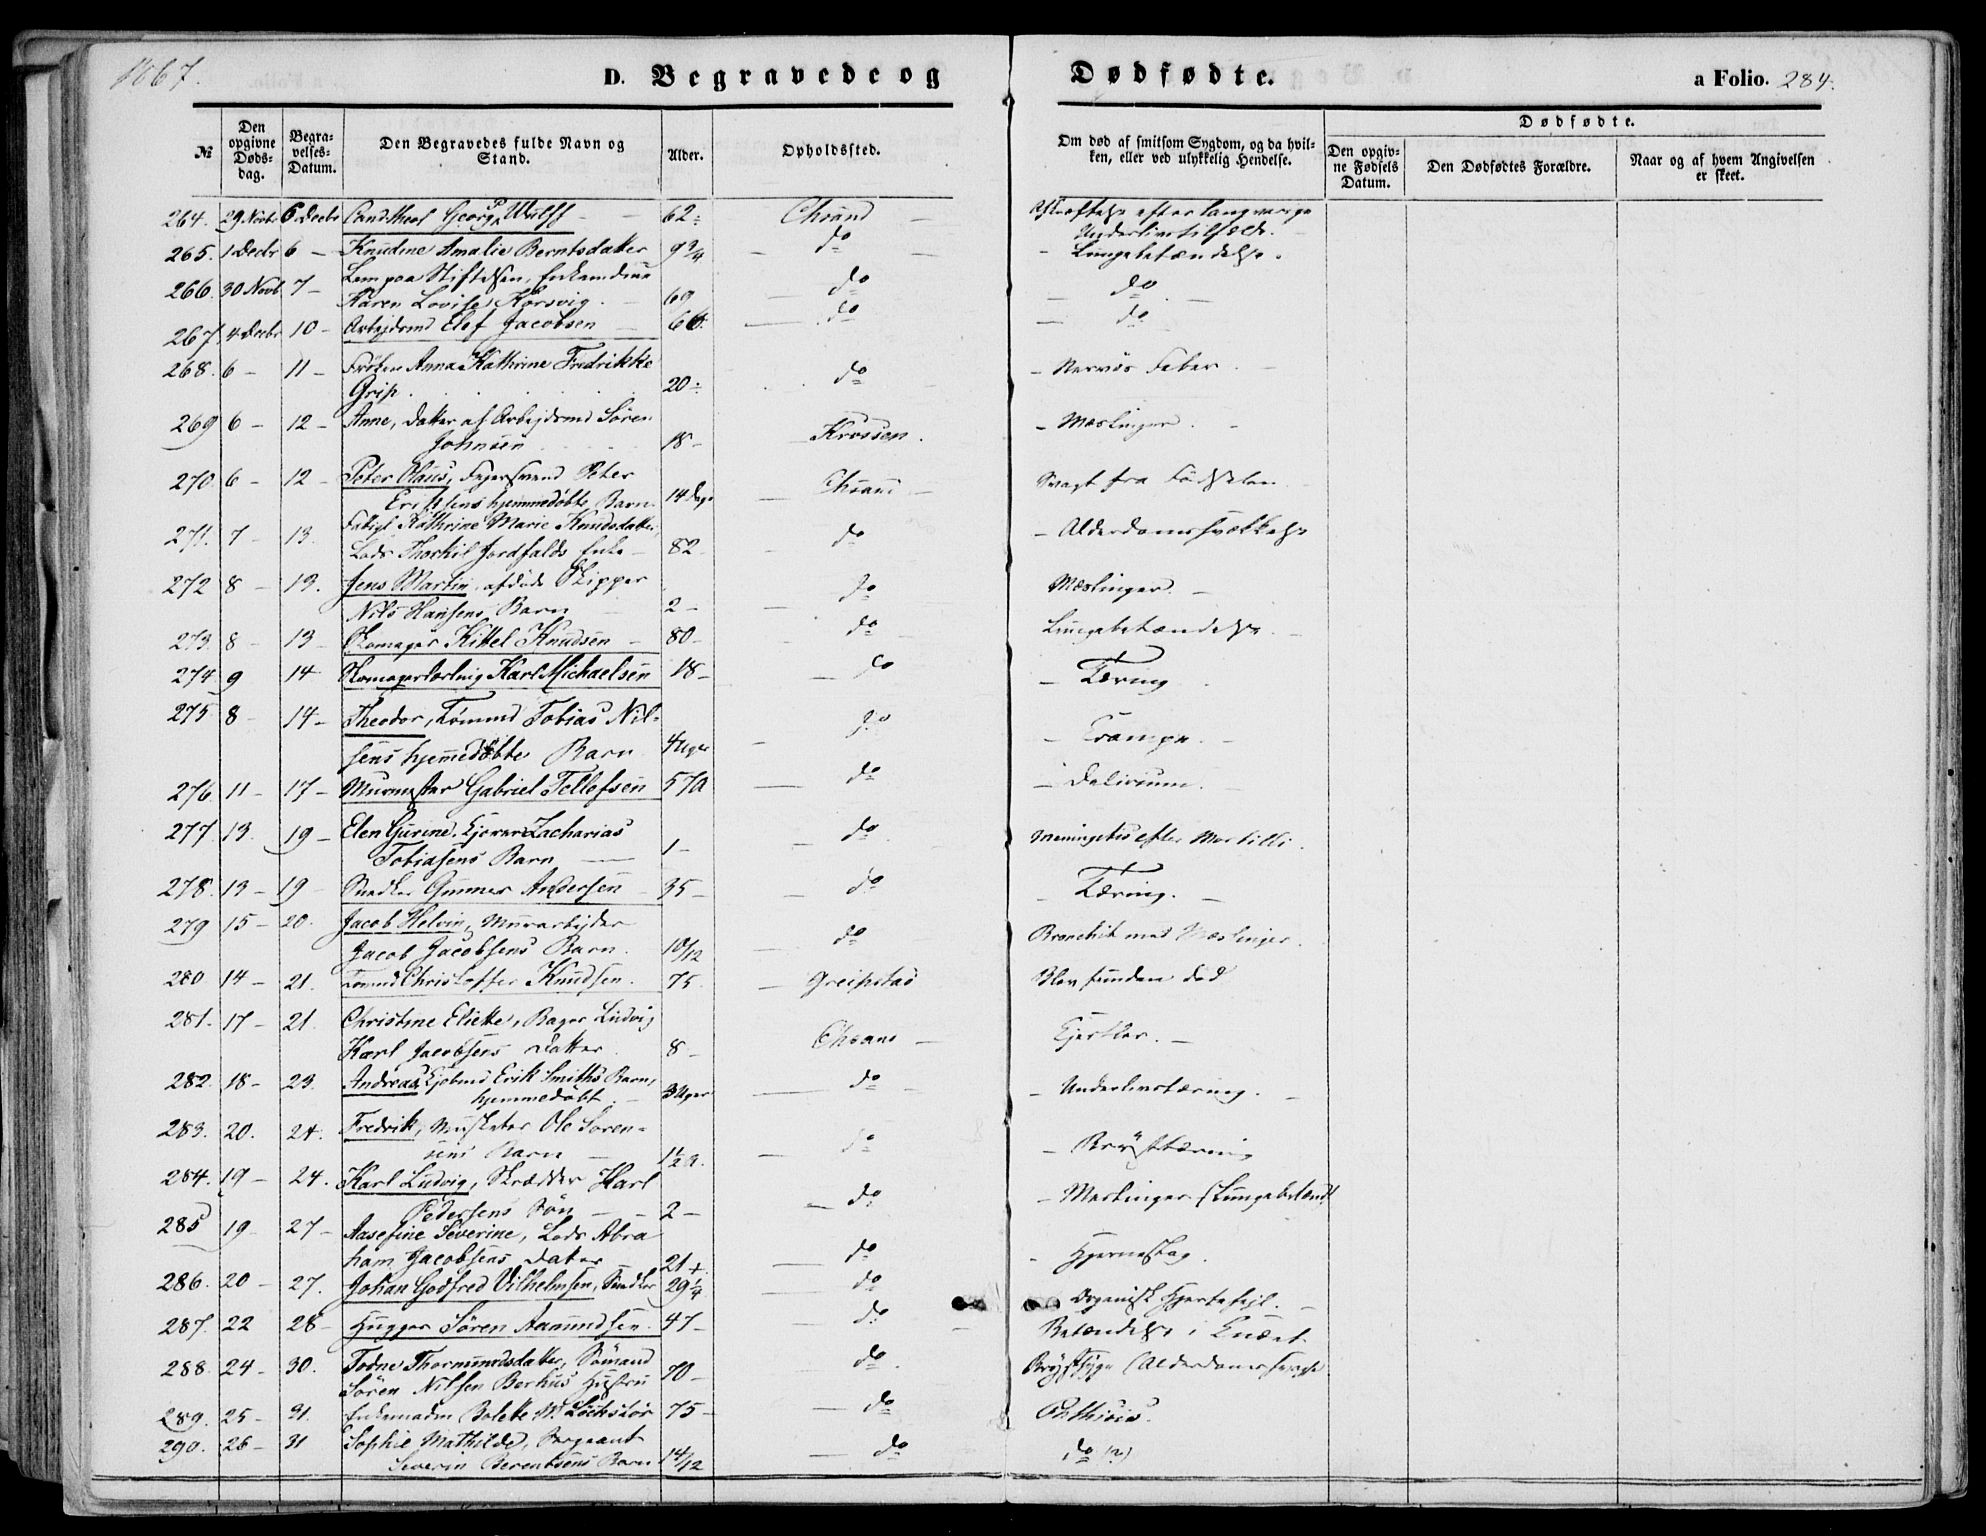 1867.
D. Begravede og Dødfødte. a Folio. 284.
№
Den opgivne Døds-dag.
Begra-velses-Datum.
Den Begravedes fulde Navn og Stand.
Alder.
Opholdssted.
Om død af smitsom Sygdom, og da hvil-ken, eller ved ulykkelig Hendelse.
Dødfødte.
Den opgiv-ne Fødsels Datum.
Den Dødfødtes Forældre.
Naar og af hvem Angivelsen er skeet.
264. 29 Novbr 6 Decbr Cand. theol Georg P Wulff 62 Chsand Afkræftelse efter langvarige
Underlivstilfælde.
265. 1 Decbr 6 Knudine Amalie Berntsdatter 9 3/4 do Lungebetændelse.
266. 30 Novb 7 Lem paa Stiftelsen, Enkemadme
Karen Lovise Korsvig. 69 do do
267. 4 Decbr 10 Arbejdsmd Elef Jacobsen 66 do do
268. 6 11 Frøken Anna Kathrine Fredrikke
Grip. 20 do Nervøs Feber.
269 6 12 Anne, Datter af Arbejdsmd Søren
Johnsen 18 Krossen. Mæslinger.
270. 6 12 Peter Olaus, Fejersvend Peter
Eriksens hjemmedøbte Barn 14 Dage Chsand Svagt fra Fødselen
271. 7 13. Fattigl Kathrine Marie Knudsdatter,
Lods Thorkil Jordfalds Enke 82 do Alderdomssvækkelse
272 8 13. Jens Martin, afdøde Skipper
Nils Hansens Barn 2 do Mæslinger.
273. 8 13 Skomager Kittel Knudsen 80 do Lungebetændelse.
274 9 14 Skomagerlærling Karl Michaelsen 18 do Tæring
275 8 14 Theodor, Tømmd Tobias Nil-
sens hjemmedøbte Barn 4 Uger do Krampe.
276 11 17 Murmester Gabriel Tellefsen 57 A do Delirium.
277 13. 19 Elen Gurine, Kjører Zacharias
Tobiasens Barn 1 do Meningitis efter Morbilli.
278. 13 19 Snedker Gunner Andersen 35 do Tæring.
279 15 20. Jacob Helvin, Murarbejder
Jacob Jacobsens Barn. 10/12 do Bronchit med Mæslinger.
280 14 21. Tømmd Christoffer Knudsen. 75. Greipstad Blev funden død
281. 17 21. Christine Eliette, Bager Ludvig
Karl Jacobsens Datter 8 Chsand Kjertler.
282. 18 23. Andreas, Kjøbmd Erik Smiths Barn,
hjemmedøbt. 3 Uger do Underlivstæring.
283. 20. 24. Fredrik, Musketer Ole Soren-
sens Barn 1 1/2 A. do Brysttæring
284. 19 24. Karl Ludvig, Skrædder Karl
Pedersens Søn 2 do Mæslinger (Lungebetænd)
285 19 27 Aasefine Severine, Lods Abra
ham Jacobsens Datter 21 do Hjerneslag.
286. 20 27. Johan Godfred Vilhelmsen, Snedker 29 1/4 do Organisk Hjertefejl.
287. 22 28 Hugger Søren Aamundsen. 47 do Betændelse i Knæet
288. 24 30. Todne Thormundsdatter, Sømand
Søren Nilsen Berhus Hustru 70 do Brystsyge (Alderdomssvagh
289. 25 31. Enkemadm Bolette M. Lochstør 75 do Phthisis.
290. 26 31 Sophie Mathilde, Sergeant
Severin Berentsens Barn 14/12 do do (?)